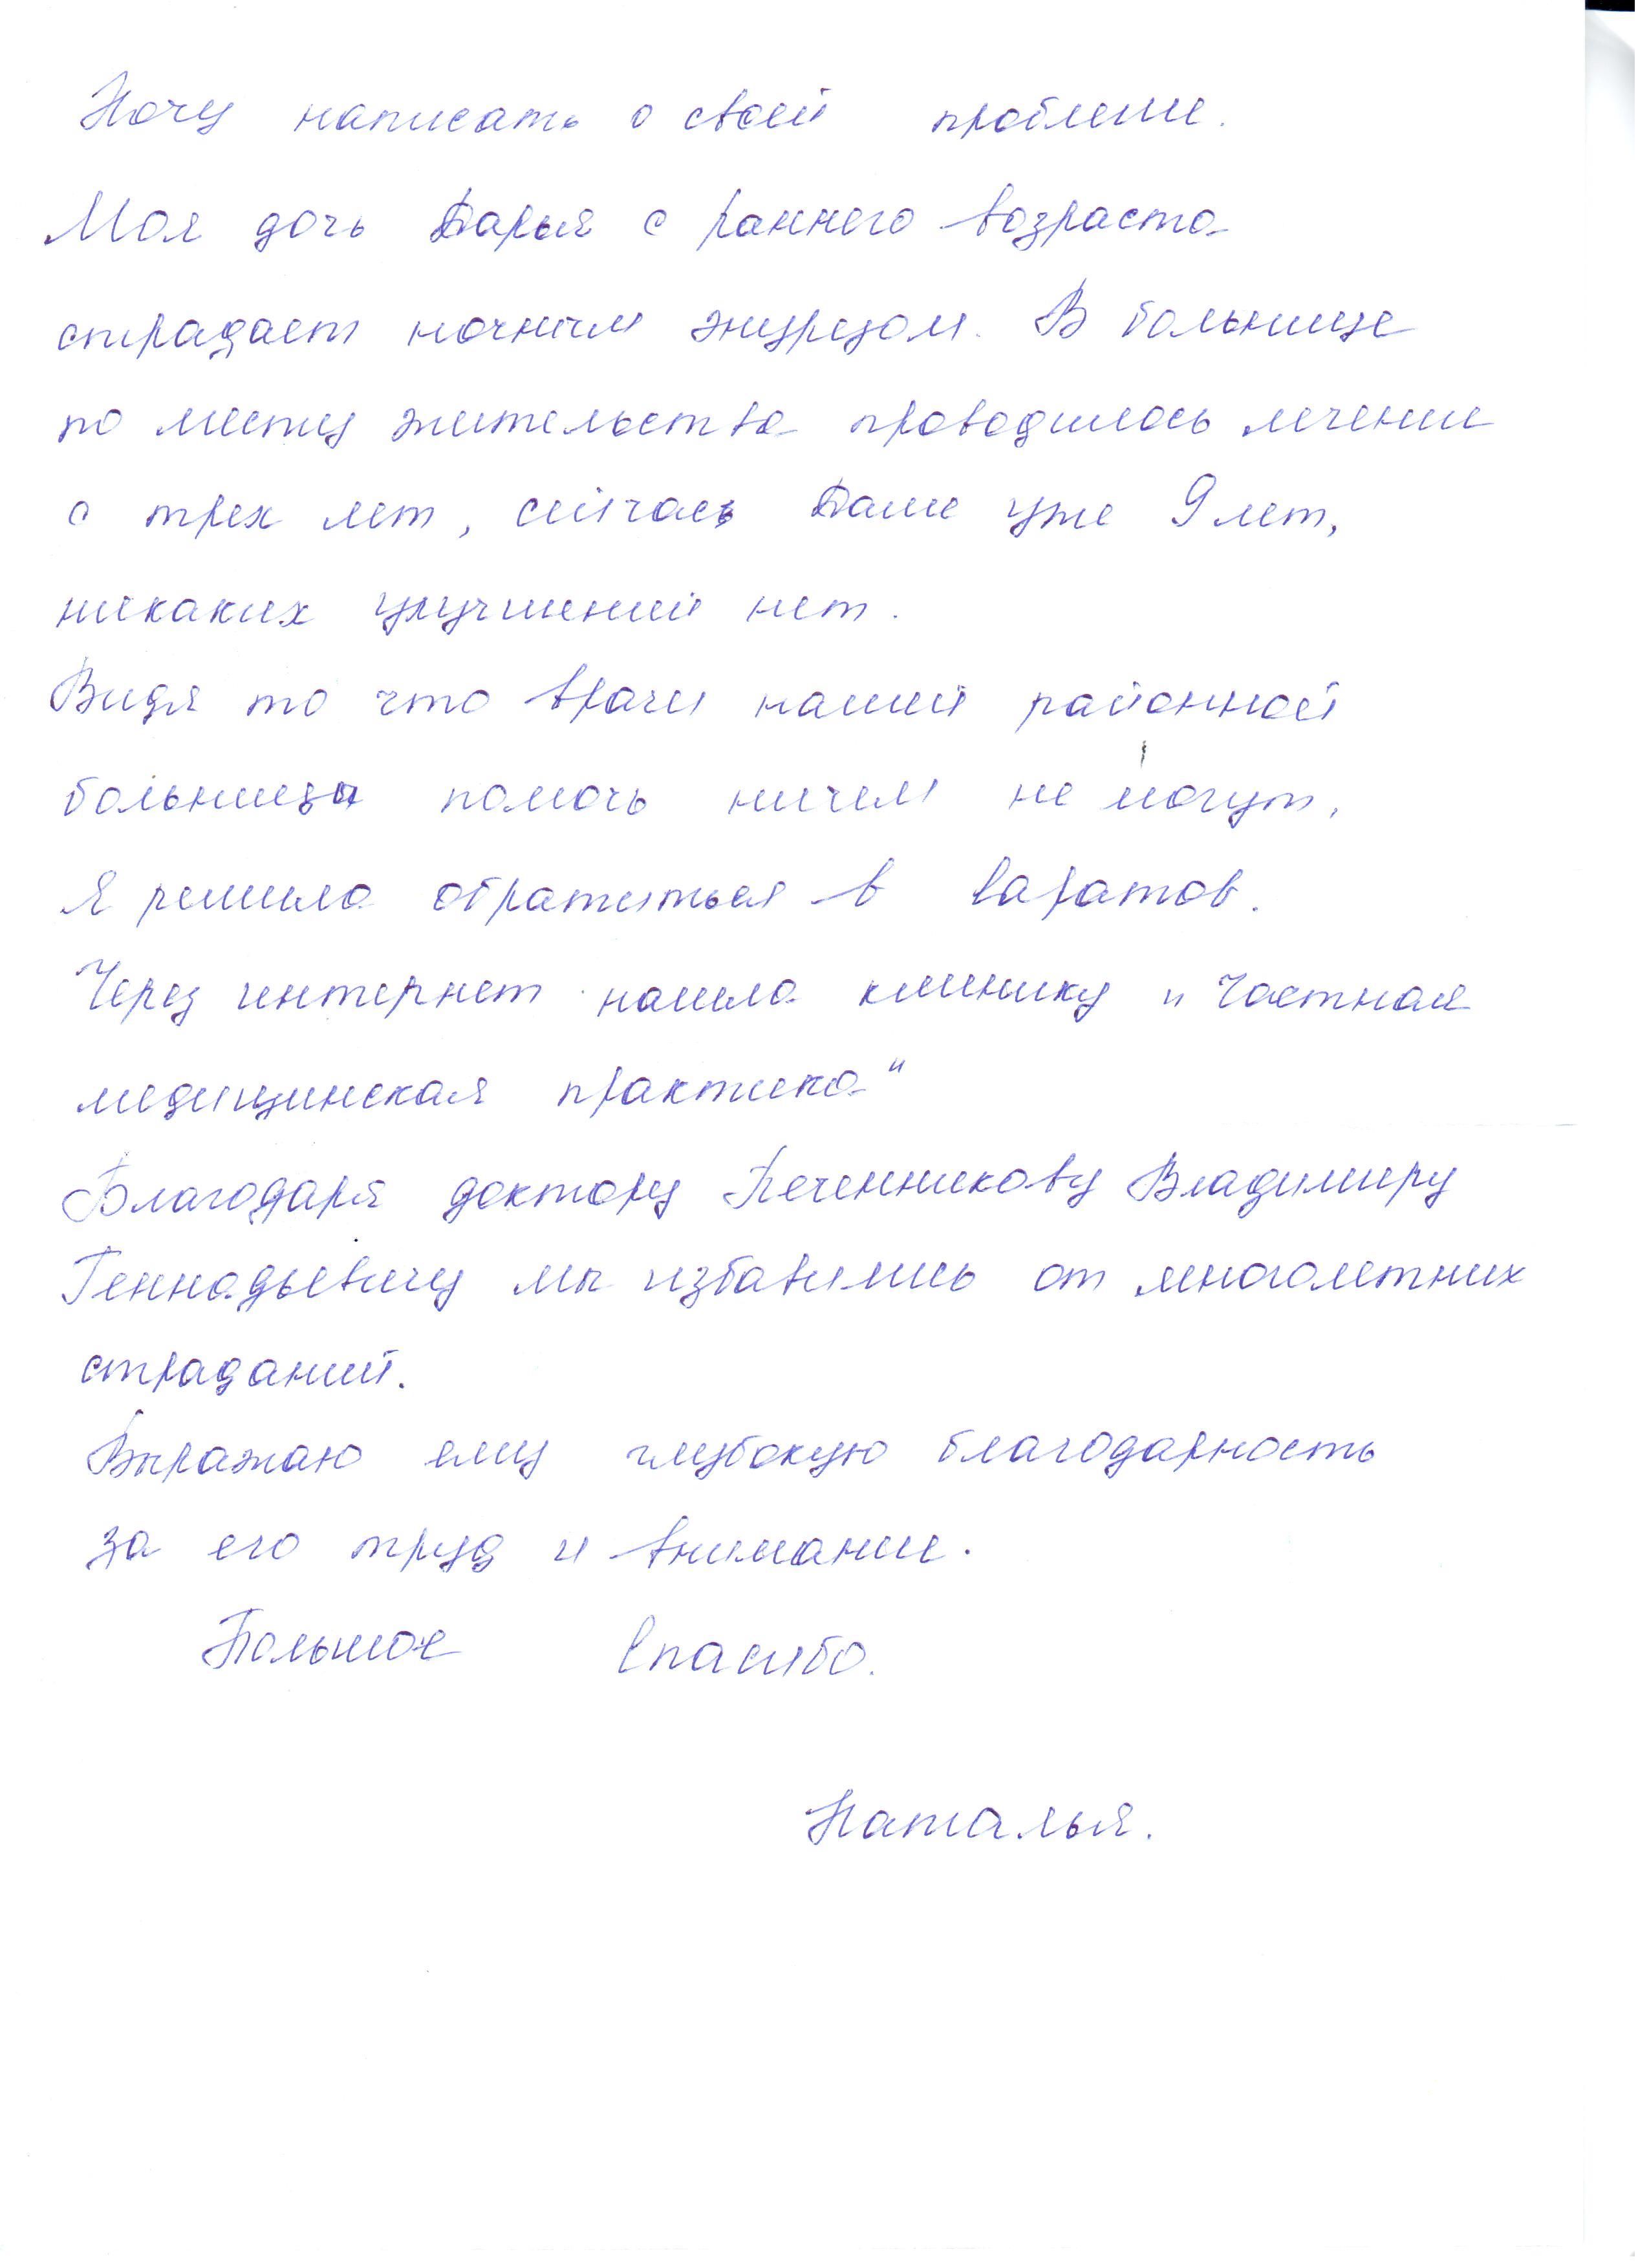 Хочу написать о своей проблеме.
Моя дочь Дарья с раннего возраста
страдает ночным энурезом. В больнице
по месту жительства проводилось лечение
с трех лет, сейчас Даше уже 9 лет,
никаких улучшений нет.
Видя то что врачи нашей районной
больницы помочь ничем не могут,
я решила обратиться в Саратов.
Через интернет нашла клинику "Частная
медицинская практика"
Благодаря доктору Печенникову Владимиру
Геннадьевичу мы избавились от многолетних
страданий.
Выражаю ему глубокую благодарность
за его труд и внимание.
Большое Спасибо.
Наталья.